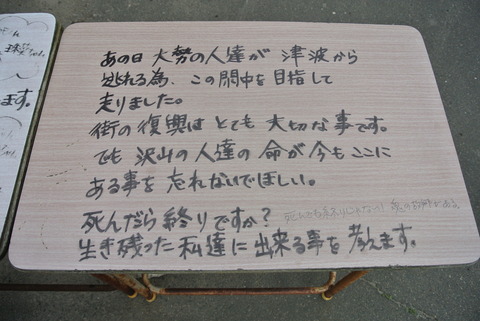 あの日 大勢の人達が 津波から
逃れる為、この閖中を目指して
走りました。
街の復興は とても 大切な事です。
でも 沢山の人達の 命が今もここに
ある事を 忘れないでほしい。
死んだら終りですか？
生き残った私達に出来る事を考えます。
ます。